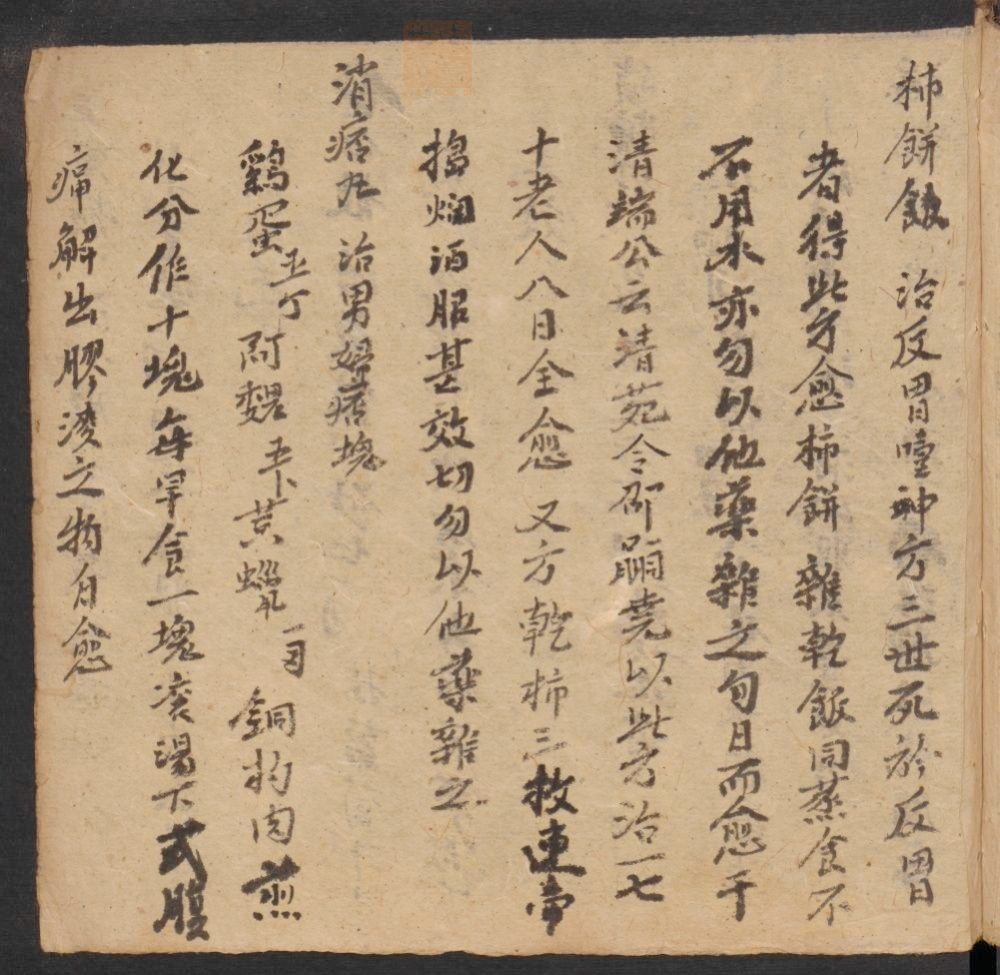 柿餅飯　治反胃噎神方三世死於反胃
者得此方愈柿餅雜乾飯同蒸食不
不用水亦勿以他藥雜之旬日而愈干
清端公云清苑令邵嗣堯以此方治一七
十老人八日全愈　又方乾柿三枚連蒂
搗爛酒服甚效切勿以他藥雜之
消痞丸　治男婦痞塊
鷄蛋五个　阿魏五卜黃蠟一　銅杓肉煎
化分作十塊每早食一塊滾湯下或腹
痛解出膠滾之物自愈